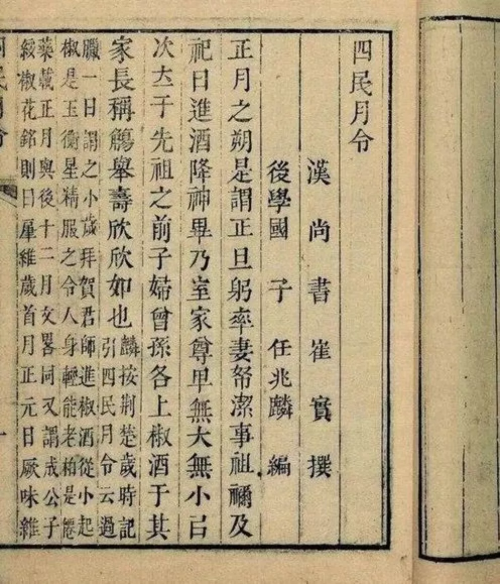 四民月令
漢尚書崔寔撰
後學國子任兆麟編
正月之朔是謂正旦躬率妻帑潔事祖禰及
祀日進酒降神畢乃室家尊卑無大無小㠯
次㘴于先祖之前子婦曾孫各上椒酒于其
家長稱觴舉壽欣欣如也麟按荆楚歲時記
引四民月令云過
臘一日謂之小歲拜賀君師進椒酒從小起
椒是玉衡星精服之令人身輕能老柏是僊
藥蔵正月與後十二月文畧同又謂成公子
綏椒花銘則曰厥維歲首月正元日厥味雜
民月令